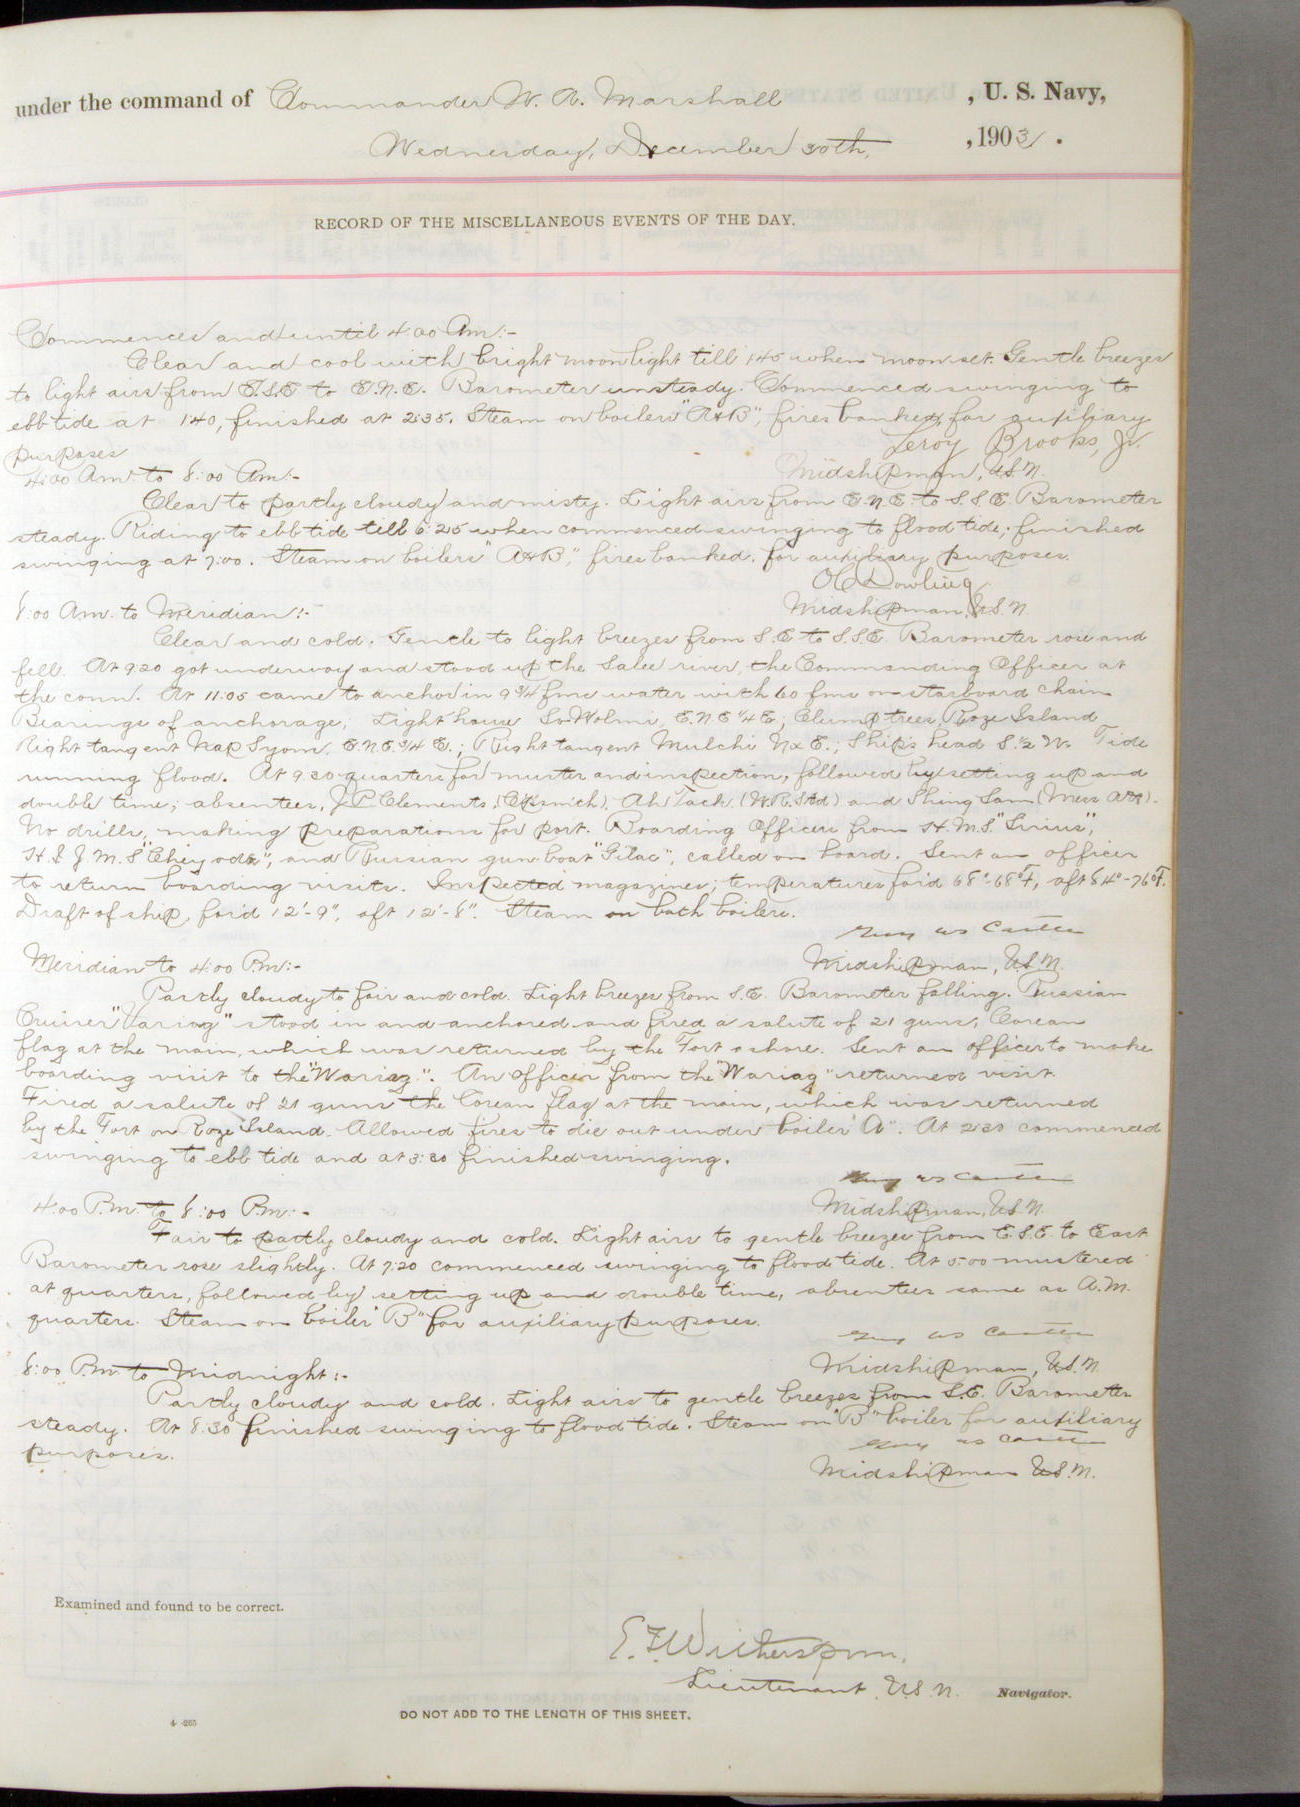 under the command of Commander W. A. Marshall , U. S. Navy,
Wednesday, December 30th, , 1903 .
RECORD OF THE MISCELLANEOUS EVENTS OF THE DAY.
Commences and until 4:00 Am:-
Clear and cool with bright moonlight till 1:45 when moon set. Gentle breezes
to light airs from E.S.E to E.N.E. Barometer unsteady. Commenced swinging to
ebb tide at 1:40, finished at 2:35. Steam on boilers "A&B", fires banked, for auxiliary
purposes
Leroy Brooks, Jr.
Midshipman, U.S.N.
4:00 Am. to 8:00 Am:-
Clear to partly cloudy and misty. Light airs from E.N.E. to S.S.E. Barometer
steady. Riding to ebb tide till 6:25 when commenced swinging to flood tide; finished
swinging at 7:00. Steam on boilers "A&B", fires banked, for auxiliary purposes.
O C Dowling
Midshipman, U.S.N.
8:00 Am. to Meridian:-
Clear and cold. Gentle to light breezes from S.E. to S.S.E. Barometer rose and
fell. At 9:20 got underway and stood up the Salee river, the Commanding Officer at
the conn. At 11:05 came to anchor in 9 3/4 fms water with 60 fms on starboard chain
Bearings of anchorage; Light house So-Wolmi, E.N.E 1/4 E; Clump trees, Roze Island
Right tangent Nap Syom, E.N.E. 3/4 E.; Right tangent Mulchi N x E.; Ship's head S. 1/2 W. Tide
running flood. At 9:30 quarters for muster and inspection, followed by setting up and
double time; absentees, J.P. Clements, Ah Tack (W.R. Std) and Shing Sam (Mess Att).
No drills, making preparations for port. Boarding Officers from H.M.S. "Sirius",
H.I.J.M.S "Chiyoda", and Russian gun-boat "Gilac", called on board. Sent an officer
to return boarding visits. Inspected magazines; temperatures for'd 68°-68°F, aft 84°-76°F.
Draft of ship, for'd 12'-9", aft 12'-8". Steam on both boilers.
Midshipman, U.S.N.
Meridian to 4:00 Pm:-
Partly cloudy to fair and cold. Light breezes from S.E. Barometer falling. Russian
Cruiser "Variag" stood in and anchored and fired a salute of 21 guns, Corean
flag at the main, which was returned by the Fort ashore. Sent an officer to make
boarding visit to the "Wariag". An Officer from the "Wariag" returned visit.
Fired a salute of 21 guns the Corean flag at the main, which was returned
by the Fort on Roze Island. Allowed fires to die out under boiler "A". At 2:30 commenced
swinging to ebb tide and at 3:30 finished swinging.
Midshipman, U.S.N.
4:00 P.m. to 8:00 Pm:-
Fair to partly cloudy and cold. Light airs to gentle breezes from E.S.E. to East
Barometer rose slightly. At 7:20 commenced swinging to flood tide. At 5:00 mustered
at quarters, followed by setting up and double time, absentees same as A.M.
quarters. Steam on boiler "B" for auxiliary purposes.
Midshipman, U.S.N.
8:00 Pm. to Midnight:-
Partly cloudy and cold. Light airs to gentle breezes from S.E. Barometer
steady. At 8:30 finished swinging to flood tide. Steam on "B" boiler for auxiliary
purposes.
Midshipman U.S.N.
Examined and found to be correct.
E. F. Witherspoon,
Lieutenant, U.S.N. Navigator.
DO NOT ADD TO THE LENGTH OF THIS SHEET.
4-265